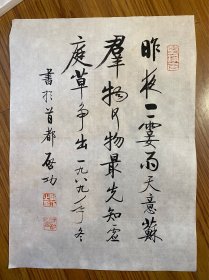 昨夜一霎雨天意蘇
羣物何物最先知虛
庭草争出一九八九年冬
書於首都啟功